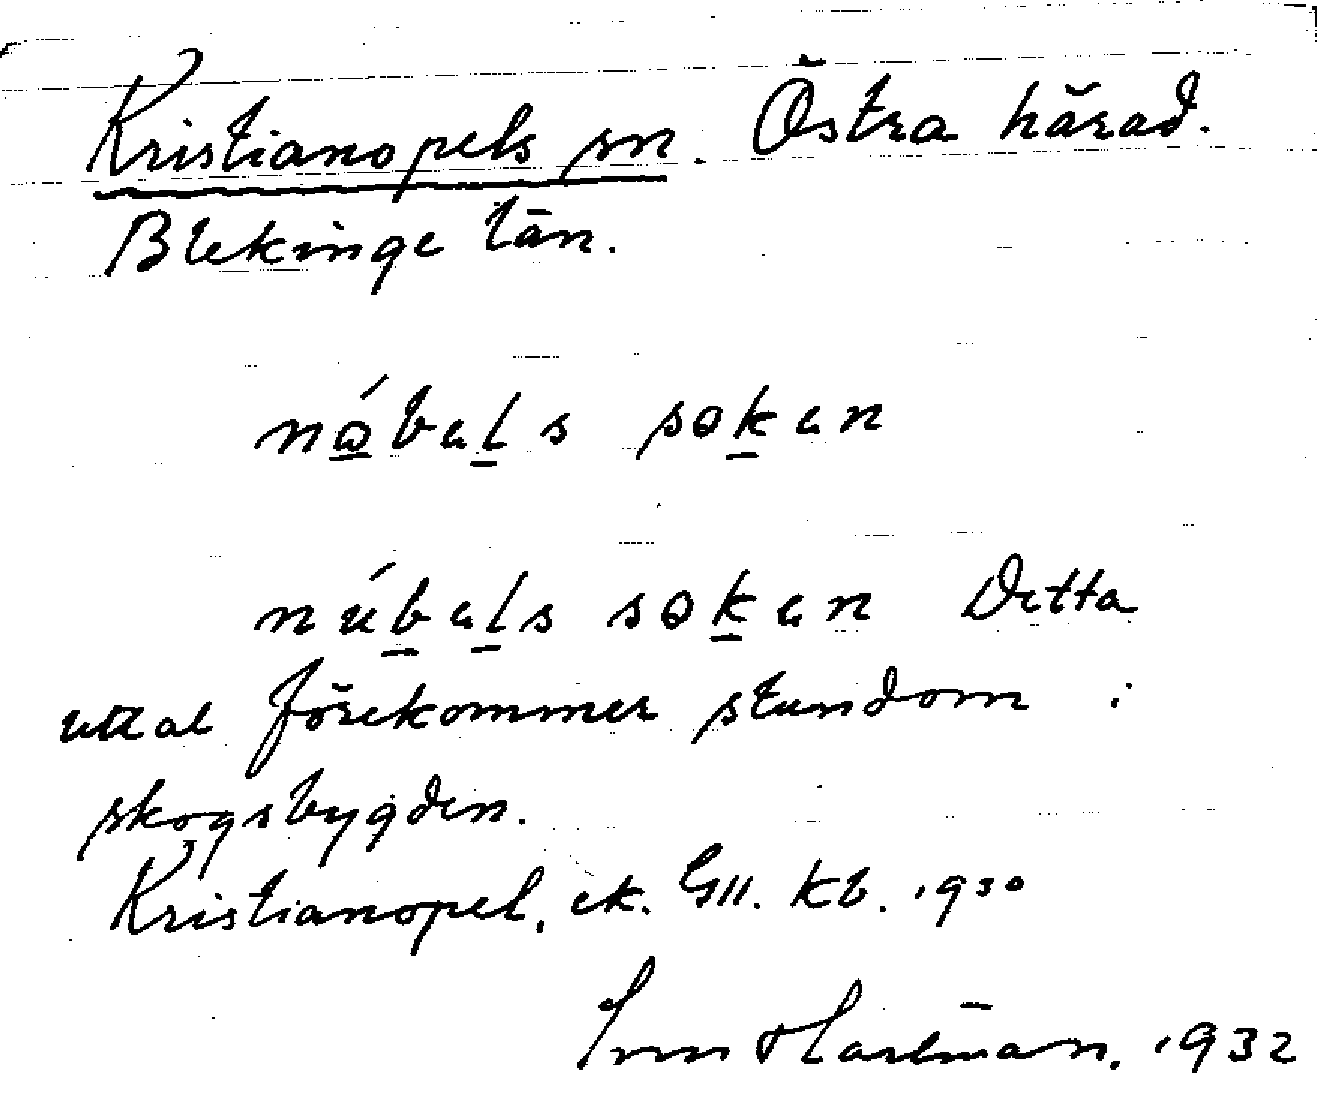 Kristianopels sn. Östra härad.
Blekinge län.
nó̱baḻs soḵan
núḇaḻs soḵan Detta
uttal förekommer stundom i
skogsbygden.
Kristianopel, ek. GII. Kb. 1930
Hartman. 1932